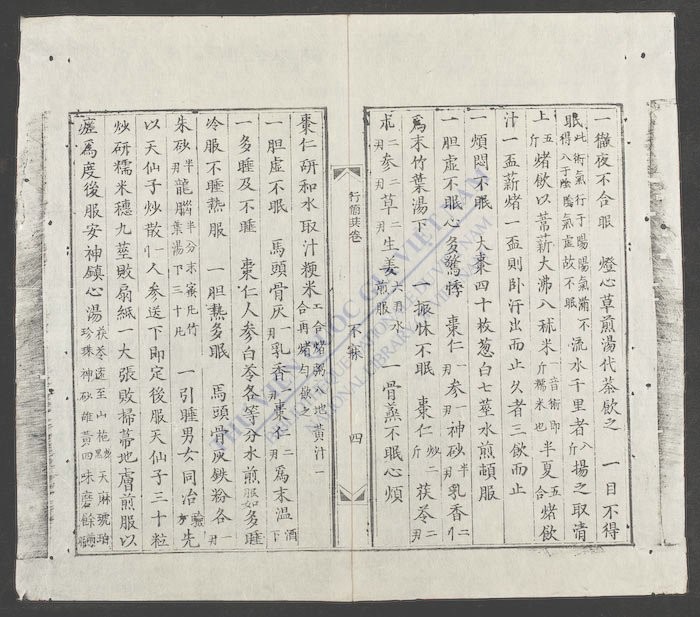 一徹夜不合眼　燈心草煎湯代茶飲之　一目不得
眠此術氣行于陽陽氣滿不得入于陰陰氣虛故不眠流水千里者八斤揚之取清
上五斤煑飲以葦薪大沸入秫米一斤音術即糯米也半夏五合煑飲
汁一盃薪煑一盃則卧汗出而止久者三飲而止
一煩悶不眠　大棗四十枚葱白七莖水煎頓服
一胆虛不眠心多驚悸　棗仁一刄參一刄神砂半刄乳香二
為末竹葉湯下　一振怵不眠　棗仁炒二斤茯苓二刄
朮二刄參二刄草二刄生姜六刄水煎服　一骨蒸不眠心煩
行簡珎卷　不寐　四
棗仁研和水取汁粳米二合煑粥入地黃汁一合再煑勻飲之
一胆虛不眠　馬頭骨灰一刄乳香一刄棗仁二刄為末温酒下
一多睡及不睡　棗仁人參白苓各等分水煎服如多睡
冷服不睡熱服　一胆熱多眠　馬頭骨灰鉄粉各一刄
朱砂半刄龍腦半分末蜜凡竹葉湯下三十凡　一引睡男女同治驗方先
以天仙子炒散人參送下即定後服天仙子三十粒
炒研糯米穗九莖敗扇紙一大張敗掃帚地膚煎服以
瘥為度後服安神鎮心湯茯苓遠至山梔天麻琥珀珍珠神砂雄黃四味磨
THƯ VIỆN QUỐC GIA VIỆT NAM
NATIONAL LIBRARY OF VIETNAM